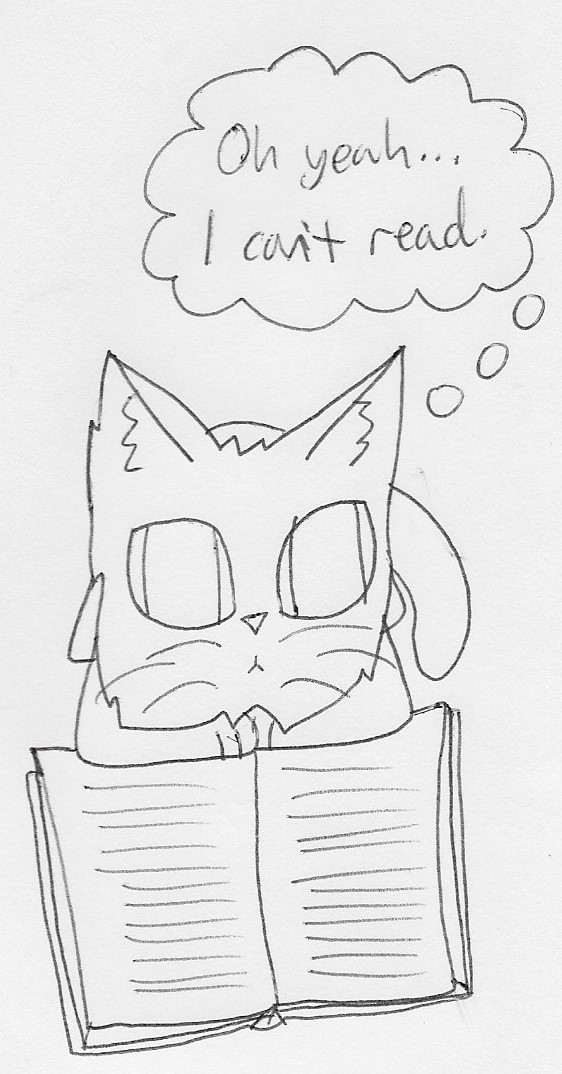 Oh yeah...
I can't read.